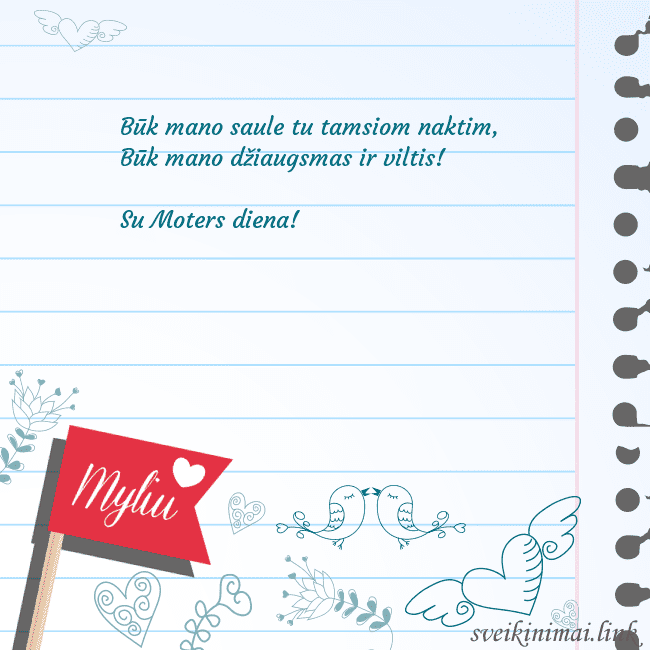 Būk mano saule tu tamsiom naktim,
Būk mano džiaugsmas ir viltis!
Su Moters diena!
Myliu
sveikinimai.link